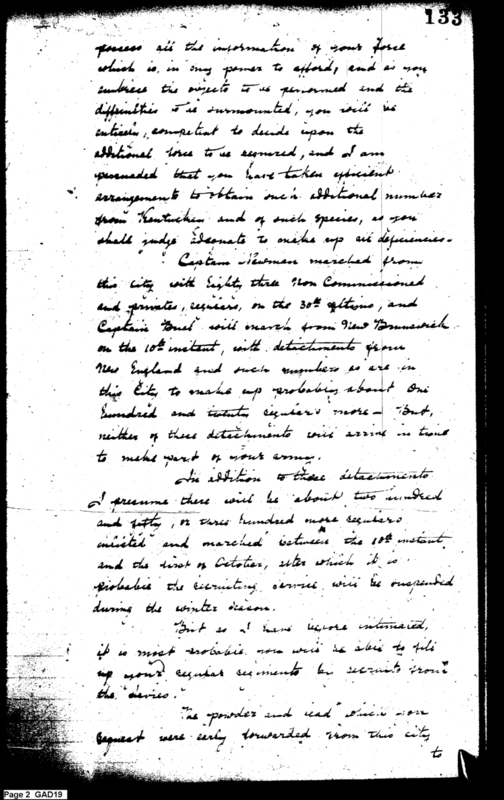 133
possess all the information of your force
which is in my power to afford, and as you
embrace the objects to be performed and the
difficulties to be surmounted, you will be
entirely, competent to decide upon the
additional force to be required, and I am
persuaded that you have taken efficient
arrangements to obtain such additional number
from Kentucky and of such species, as you
shall judge adequate to make up all deficiencies.
Captain Newman marched from
this city with Eighty three Non Commissioned
and privates, regulars, on the 30th ultimo, and
Captain Buel will march from New Brunswick
on the 10th instant, with detachments from
New England and such numbers as are in
this City to make up probably about One
Hundred and twenty regulars more — But,
neither of these detachments will arrive in time
to make part of your army.
In addition to those detachments
I presume there will be about two hundred
and fifty, or three hundred more regulars
enlisted and marched between the 10th instant
and the first of October, after which it is
probable the recruiting service will be suspended
during the winter season.
But as I have before intimated,
it is most probable you will be able to fill
up your regular regiments by recruits from
the levies.
The powder and lead which you
request were early forwarded from this city
to
Page 2 GAD19